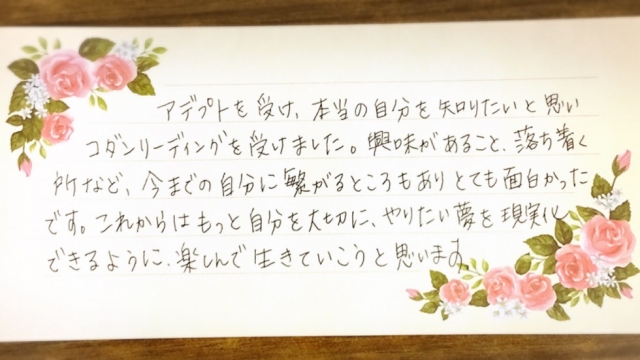 アデプトを受け、本当の自分を知りたいと思い
コダンリーディングを受けました。興味があること、落ち着く
所など、今までの自分に繋がるところもありとても面白かった
です。これからはもっと自分を大切に、やりたい夢を現実化
できるように、楽しんで生きていこうと思います。